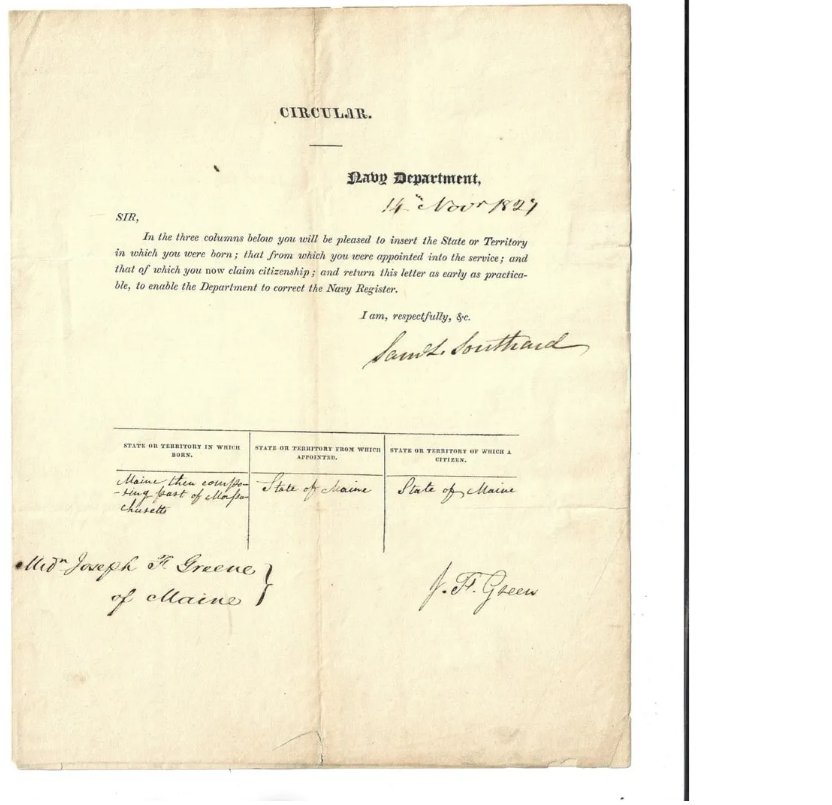 CIRCULAR.
Navy Department,
14th Novr 1827
SIR,
In the three columns below you will be pleased to insert the State or Territory
in which you were born; that from which you were appointed into the service; and
that of which you now claim citizenship; and return this letter as early as practica-
ble, to enable the Department to correct the Navy Register.
I am, respectfully, &c.
Saml. L. Southard
STATE OR TERRITORY IN WHICH
BORN.
STATE OR TERRITORY FROM WHICH
APPOINTED.
STATE OR TERRITORY OF WHICH A
CITIZEN.
Maine then compo-
-sing part of Massa
chusetts
State of Maine
State of Maine
Midn Joseph F Greene
of Maine
J. F. Green